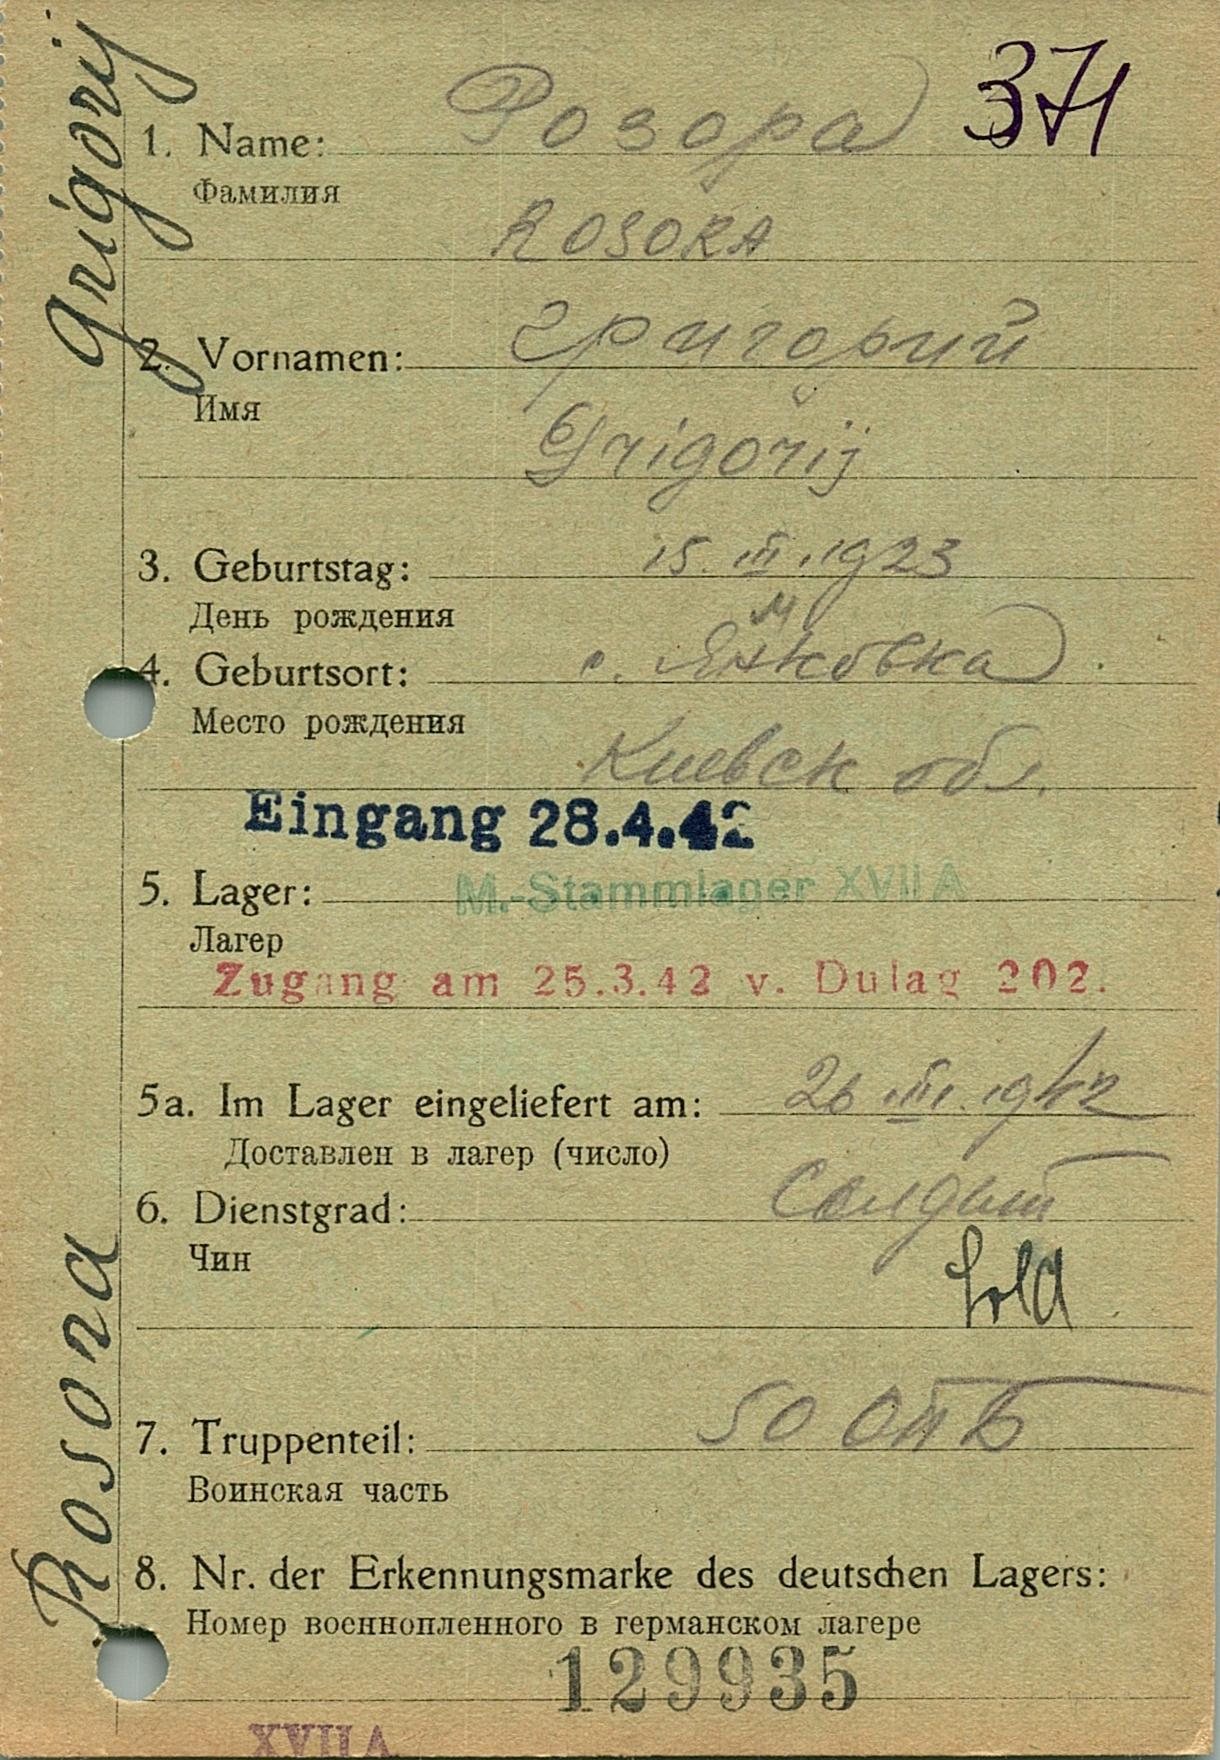 Grigorij
371
1. Name: Розора
Фамилия
ROSORA
2. Vornamen: Григорий
Имя
Grigorij
3. Geburtstag: 15. III. 1923
День рождения
4. Geburtsort: с.
Место рождения
Киевск обл.
Eingang 28.4.42
5. Lager: M.-Stammlager XVII A
Лагер
Zugang am 25.3.42 v. Dulag 202.
5a. Im Lager eingeliefert am: 26 III. 1942
Доставлен в лагер (число)
6. Dienstgrad: Солдат
Чин
Sold
7. Truppenteil: 50
Воинская часть
Rosora
8. Nr. der Erkennungsmarke des deutschen Lagers:
Номер военнопленного в германском лагере
129935
XVII A